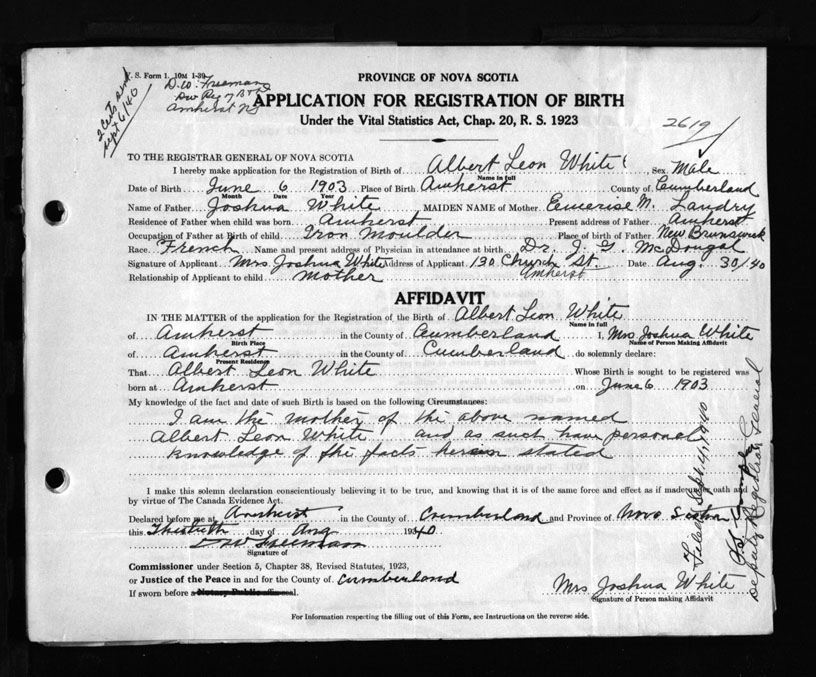 V. S. Form 1. 10M 1-39
D. W. Freeman
Div Reg of B & D
Amherst NS
2 certs and
sept 6/40
PROVINCE OF NOVA SCOTIA
APPLICATION FOR REGISTRATION OF BIRTH
Under the Vital Statistics Act, Chap. 20, R. S. 1923
2619
TO THE REGISTRAR GENERAL OF NOVA SCOTIA
I hereby make application for the Registration of Birth of Albert Leon White Sex Male
Name in full
Date of Birth June 6 1903 Place of Birth Amherst County of Cumberland
Month Date Year
Name of Father Joshua White MAIDEN NAME of Mother Emerise M. Landry
Residence of Father when child was born Amherst Present address of Father Amherst
Occupation of Father at Birth of child Iron Moulder Place of Birth of Father New Brunswick
Race French Name and present address of Physician in attendance at birth Dr. J. G. McDougal
Signature of Applicant Mrs Joshua White Address of Applicant 130 Church St. Amherst Date Aug. 30/40
Relationship of Applicant to child mother
AFFIDAVIT
IN THE MATTER of the application for the Registration of the Birth of Albert Leon White
Name in full
of Amherst in the County of Cumberland I, Mrs Joshua White
Birth Place Name of Person Making Affidavit
of Amherst in the County of Cumberland do solemnly declare:
Present Residence
That Albert Leon White Whose Birth is sought to be registered was
born at Amherst on June 6 1903
My knowledge of the fact and date of such Birth is based on the following Circumstances:
I am the mother of the above named
Albert Leon White and as such have personal
knowledge of the facts herein stated
I make this solemn declaration conscientiously believing it to be true, and knowing that it is of the same force and effect as if made under oath and
by virtue of The Canada Evidence Act.
Declared before me at Amherst in the County of Cumberland and Province of Nova Scotia
this Thirtieth day of Aug 1940
D W Freeman
Signature of
Commissioner under Section 5, Chapter 38, Revised Statutes, 1923,
or Justice of the Peace in and for the County of Cumberland
If sworn before a Notary Public affix seal.
Mrs Joshua White
Signature of Person making Affidavit
For Information respecting the filling out of this Form, see Instructions on the reverse side.
Filed Sept. 4, 1940
Deputy Registrar General